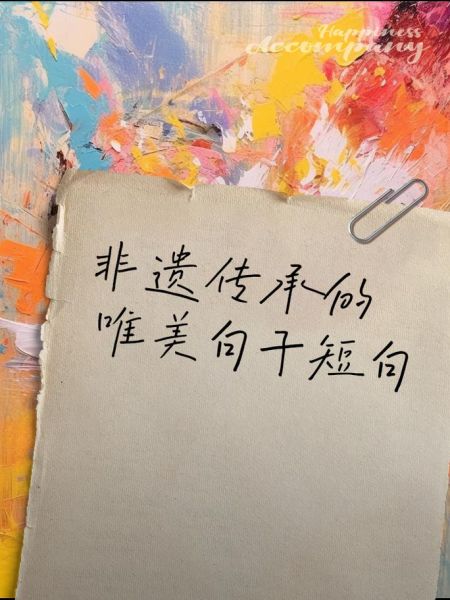 Happiness
Accompany
非遗传承的
唯美句子短句